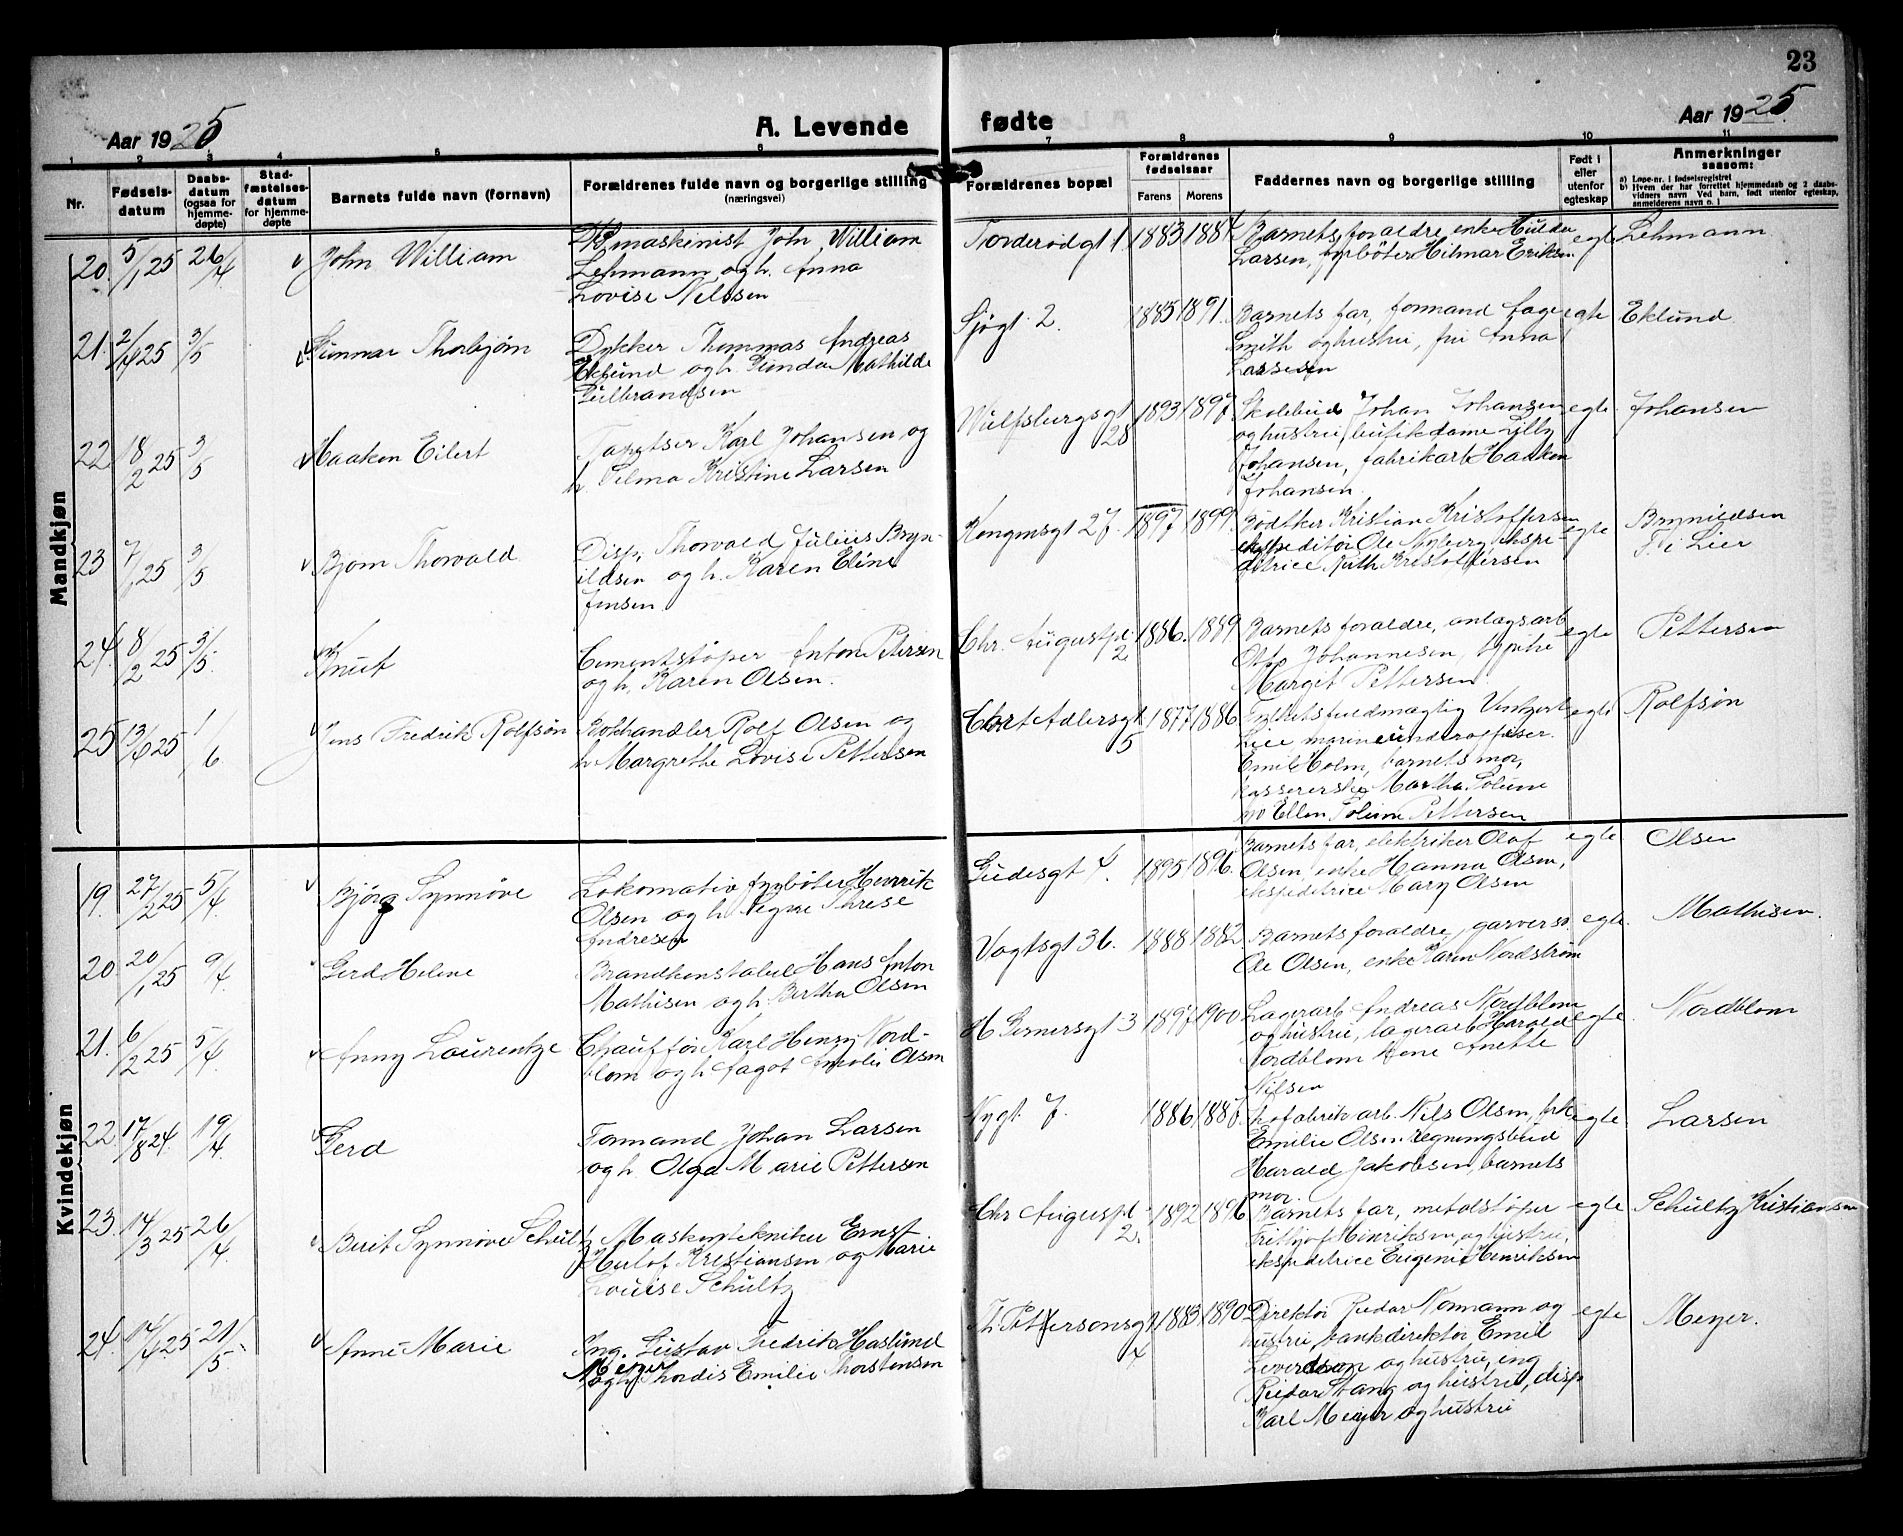 23
Aar 1925
A. Levende fødte
Aar 1925
1 2 3 4 5 6 7 8 9 10 11
Nr.
Fødsels-
datum
Daabs-
datum
(ogsaa for
hjemme-
døpte)
Stad-
fæstelses-
datum
for hjemme-
døpte
Barnets fulde navn (fornavn)
Forældrenes fulde navn og borgerlige stilling
(næringsvei)
Forældrenes bopæl
Forældrenes
fødselsaar
Farens Morens
Faddernes navn og borgerlige stilling
Født i
eller
utenfor
egteskap
Anmerkninger
saasom:
a) Løpe-nr. i fødselsregistret
b) Hvem der har forrettet hjemmedaab og 2 daabs-
vidners navn Ved barn, født utenfor egteskap,
anmelderens navn o. l
Mandkjøn
20. 5/1 25 26/4 John William
maskinist John William
Lehmann og h. Anna
Lovise Nilssen
Torderødgt 1. 1883 1884
Barnets foraldre, enke Hulda
Larsen, fyrböter Hilmar Eriksen
egte Lehmann
21. 2/4 25 3/5 Gunnar Thorbjørn
Dykker Thommas Andreas
Eklund og h. Gunda Mathilde
Gulbrandsen
Sjøgt 2. 1885 1891.
Barnets far, formand Aage
Smith og hustru, fru Anna
Larssen
egte Eklund
22 18/2 25 3/5 Haaken Eilert
Tapetser Karl Johansen og
h. Selma Kristine Larsen
Wulfsbergsgt
28
1893 1897.
Skolebud Johan Johansen
og hustru, butikdame Lilly
Johansen, fabrikarb Haaken
Johansen.
egte Johansen
23 7/1 25 3/5 Bjørn Thorvald.
Disp. Thorvald Julius Bryn-
ildsen og h. Karen Eline
Jensen.
Kongensgt 27. 1897 1899.
Bødtker Kristian Kristoffersen
ekspeditør Ole Nyberg ekspe-
ditrice Ruth Kristoffersen
egte Brynildsen
F. i Lier
24. 8/2 25 3/5. Knut
Cementstøper Anton Petersen
og h. Karen Olsen.
Chr. Augustpl.
2
1886. 1889
Barnets foraldre, anlagsarb
Otto Johannesen,
Margit Pettersen.
egte Pettersen
25 13/6 25 1/6 Jens Fredrik Rolfsøn
Kolhandler Rolf Olsen og
h Margrethe Lovise Pettersen
Cort Adlersgt
5
1877. 1886
Fylkesfuldmagtig
Lie, marineunderoffiser.
Emil Holm, barnets mor,
kassererske Martha Solum
og Ellen Solum Pettersen
egte Rolfsøn
Kvindekjøn
19. 27/2 25 5/4 Bjørg Synnøve
Lokomativ fyrbøter Henrik
Olsen og h. Signe Threse
Andresen
Gudesgt 4. 1895 1896.
Barnets far, elektriker Olaf
Olsen, enke Hanna Olsen,
ekspeditrice Mary Olsen
egte Olsen
20. 20/1 25 9/4 Gerd Helene
Brandkonstabel Hans Anton
Mathisen og h. Bertha Olsen
Vogtsgt 36. 1888 1882
Barnets foraldre, garversv.
Ole Olsen, enke Karen Nordstrøm
egte. Mathisen.
21. 6/2 25 5/4 Anny Laurentze
Chauffør Karl Henry Nord-
blom og h Aagot Amalie Olsen
H Gernersgt 3 1897 1900
Lagerarb Andreas Nordblom
og hustru, lagerarb Harald
Nordblom Lene Anette
Nilsen
egte. Nordblom
22 17/8 24. 19/4 Gerd
Formand Johan Larsen
og h. Olga Marie Pettersen
Nygt 7. 1886 1887.
skofabrik arb. Nils Olsen, frk
Emilie Olsen regningsbud
Harald Jakobsen, barnets
mor.
egte. Larsen
23. 14/3 25 26/4 Berit Synnøve Schultz
Maskintekniker Ernst
Herlof Kristiansen og Marie
Louise Schultz
Chr Augustpl
2.
1892 1896
Barnets far, metalstøper
Frithjof Henriksen, og hustru,
ekspeditrice Eugenie Henriksen
egte Schultz Kristiansen
24. 14/4 25 21/5. Anne-Marie
Ing. Gustav Fredrik Haslund
Meyer
og h. Thordis Emilie Thorstensen
Th. Pettersonsgt
4
1883. 1890
Direktør Reidar Normann og
hustru, bankdirektør Emil
og hustru, ing
Reidar Stang og hustru, disp
Karl Meyer og hustru
egte Meyer.